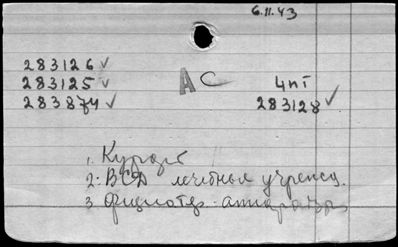 6.11.43
283126 ✓
283125 ✓
283874 ✓
АС
4пт
283128 ✓
1.
2. ВСД лечебных учрежд.
3. Физиотер. аппараты